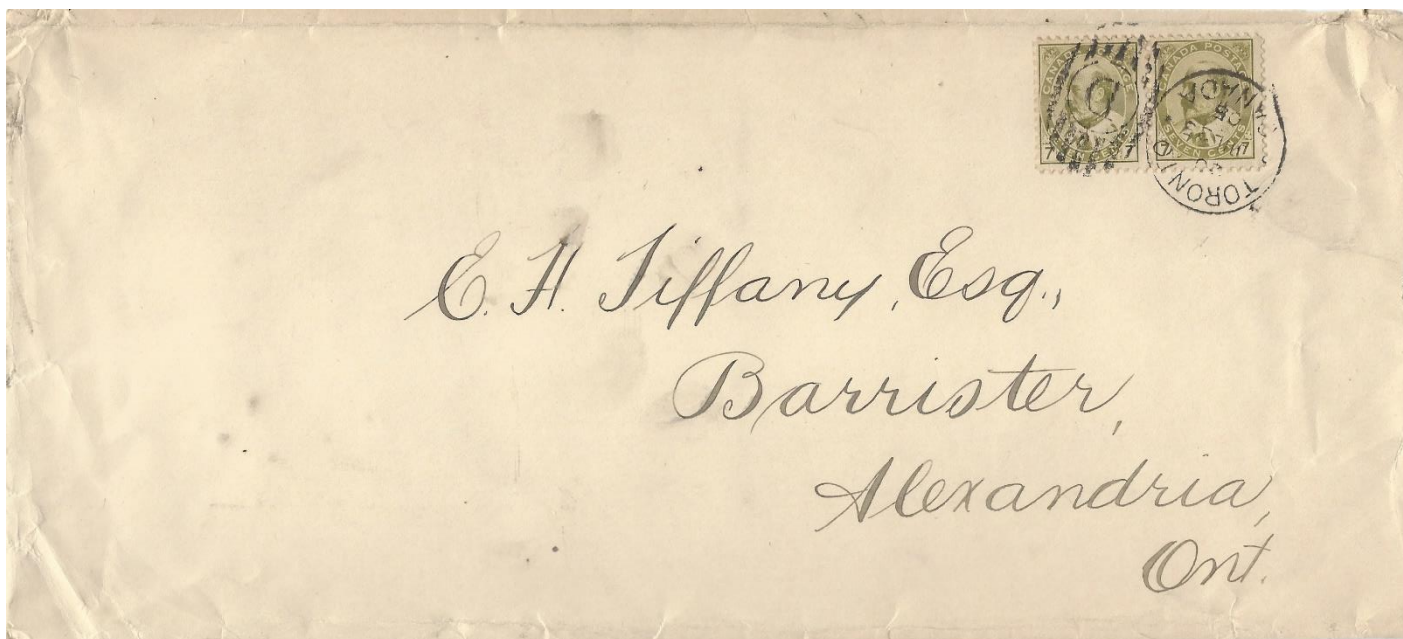 CANADA POSTAGE
SEVEN CENTS
7 7
CANADA POSTAGE
SEVEN CENTS
7
D
TORONTO
CANADA
05
E. H. Tiffany, Esq.,
Barrister,
Alexandria,
Ont.